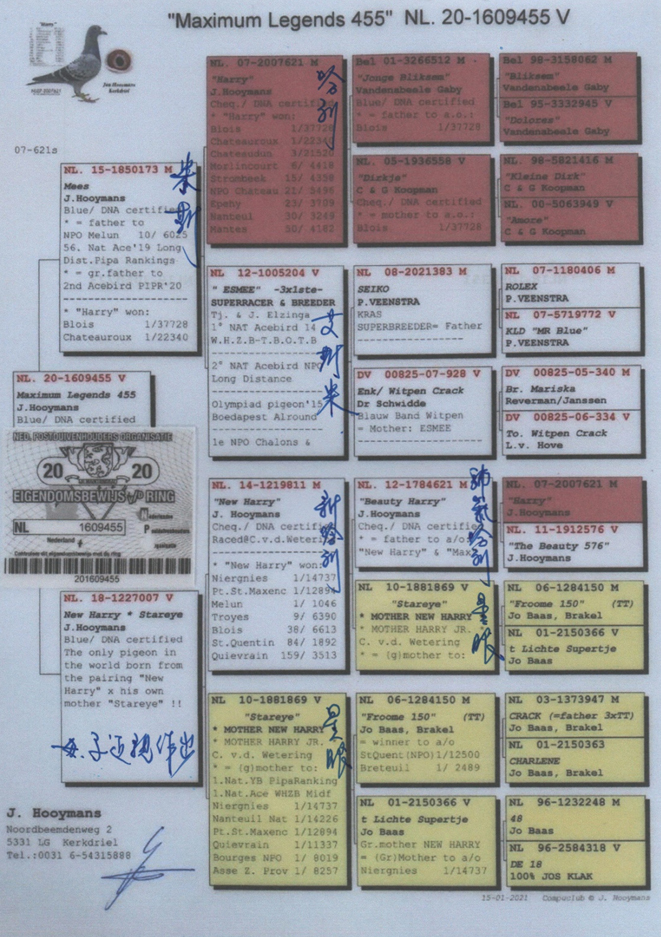 "Maximum Legends 455" NL. 20-1609455 V
"Harry"
Jan Hooymans
Kerkdriel
07-621s
NL. 20-1609455 V
Maximum Legends 455
J.Hooymans
Blue/ DNA certified
NED. POSTDUIVENHOUDERS ORGANISATIE
20 20
EIGENDOMSBEWIJS v/D RING
NL 1609455
Nederland
201609455
NL. 15-1850173 M
Mees
J.Hooymans
Blue/ DNA certified
* = father to
NPO Melun 10/ 6025
56. Nat Ace'19 Long
Dist.Pipa Rankings
* = gr.father to
2nd Acebird PIPR'20
* "Harry" won:
Blois 1/37728
Chateauroux 1/22340
米斯
NL. 18-1227007 V
New Harry * Stareye
J.Hooymans
Blue/ DNA certified
The only pigeon in
the world born from
the pairing "New
Harry" x his own
mother "Stareye" !!
母子近亲作出
NL. 07-2007621 M
"Harry"
J.Hooymans
Cheq./ DNA certified
* "Harry" won:
Blois 1/37728
Chateauroux 1/22340
Chateaudun 3/21520
Morlincourt 6/ 4418
Strombeek 15/ 4359
NPO Chateau 21/ 5495
Epehy 23/ 3709
Nanteul 30/ 3249
Mantes 30/ 4162
哈利
NL 12-1005204 V
" ESMEE" -3x1ste-
SUPERRACER & BREEDER
Tj. & J. Elzinga
1° NAT Acebird 14
W.H.Z.B-T.B.O.T.B
2° NAT Acebird NPO
Long Distance
Olympiad pigeon'15
Boedapest Alround
1e NPO Chalons &
艾斯米
NL 14-1219811 M
"New Harry"
J. Hooymans
Cheq./ DNA certified
Raced@C.v.d.Wetering
* "New Harry" won:
Niergnies 1/14737
Pt.St.Maxenc 1/12894
Melun 1/ 1046
Troyes 9/ 6390
Blois 38/ 6613
St.Quentin 84/ 1892
Quievrain 159/ 3513
新哈利
NL 10-1881869 V
"Stareye"
* MOTHER NEW HARRY
* MOTHER HARRY JR.
C. v.d. Wetering
* = (g)mother to:
1.Nat.YB PipaRanking
1.Nat.Ace WHZB Midf
Niergnies 1/14737
Nanteuil Nat 1/14226
Pt.St.Maxenc 1/12894
Quievrain 1/11337
Bourges NPO 1/ 8019
Asse Z. Prov 1/ 8257
星眼
Bel 01-3266512 M
"Jonge Bliksem"
Vandenabeele Gaby
Blue/ DNA certified
* = father to a.o.:
Blois 1/37728
NL. 05-1936558 V
"Dirkje"
C & G Koopman
Cheq./ DNA certified
* = mother to a.o.:
Blois 1/37728
NL 08-2021383 M
SEIKO
P.VEENSTRA
KRAS
SUPERBREEDER= Father
DV 00825-07-928 V
Enk/ Witpen Crack
Dr Schwidde
Blauw Band Witpen
= Mother: ESMEE
NL. 12-1784621 M
"Beauty Harry"
J. Hooymans
Cheq./ DNA certified
* = father to a/o
"New Harry" & "Max
哈利
NL 10-1881869 V
"Stareye"
* MOTHER NEW HARRY
* MOTHER HARRY JR.
C. v.d. Wetering
* = (g)mother to:
星眼
NL 06-1284150 M
"Froome 150" (TT)
Jo Baas, Brakel
= winner to a/o
StQuent(NPO)1/12500
Breteuil 1/ 2489
NL 01-2150366 V
t Lichte Supertje
Jo Baas
Gr.mother NEW HARRY
= (Gr)Mother to a/o
Niergnies 1/14737
Bel 98-3158062 M
"Bliksem"
Vandenabeele Gaby
Bel 95-3332945 V
"Dolores"
Vandenabeele Gaby
NL. 98-5821416 M
"Kleine Dirk"
C & G Koopman
NL. 00-5063949 V
"Amore"
C & G Koopman
NL 07-1180406 M
ROLEX
P.VEENSTRA
NL 07-5719772 V
KLD "MR Blue"
P.VEENSTRA
DV 00825-05-340 M
Br. Mariska
Reverman/Janssen
DV 00825-06-334 V
To. Witpen Crack
L.v. Hove
NL. 07-2007621 M
"Harry"
J.Hooymans
NL. 11-1912576 V
"The Beauty 576"
J.Hooymans
NL 06-1284150 M
"Froome 150" (TT)
Jo Baas, Brakel
NL 01-2150366 V
t Lichte Supertje
Jo Baas
NL 03-1373947 M
CRACK (=father 3xTT)
Jo Baas, Brakel
NL 01-2150363 V
CHARLENE
Jo Baas, Brakel
NL 96-1232248 M
48
Jo Baas
NL 96-2584318 V
DE 18
100% JOS KLAK
J. Hooymans
Noordbeemdenweg 2
5331 LG Kerkdriel
Tel.:0031 6-54315888
15-01-2021 Compuclub © J. Hooymans